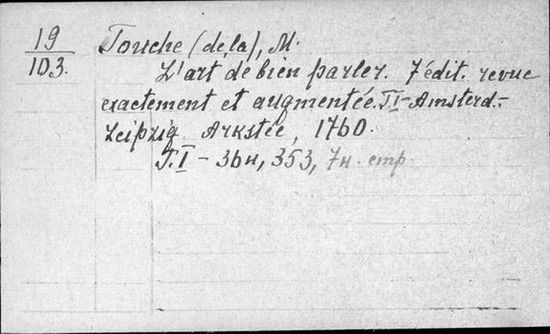 19
103.
Touche (de la), M.
L'art de bien parler. 7 édit. revue
exactement et augmentée. T.I-Amsterd.-
Leipzig. Arkstée, 1760.
T.I - 36н, 353, 7н. стр.